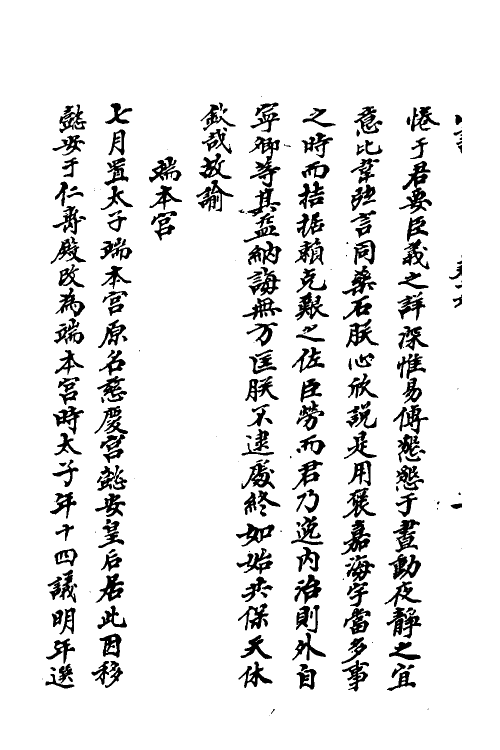 惓于君要臣義之詳深惟易傅懇懇于晝動夜靜之宜
意比韋弦言同藥石朕心欣說是用褒嘉海宇當多事
之時而拮据賴克艱之佐臣勞而君乃逸內治則外自
寧卿等其益納誨無方匡朕不逮慶終如始共保天休
欽哉故諭
瑞本宮
七月置太子瑞本宮原名慈慶宮懿安皇后居此因移
懿安于仁壽殿改為端本宮時太子年十四議明年選